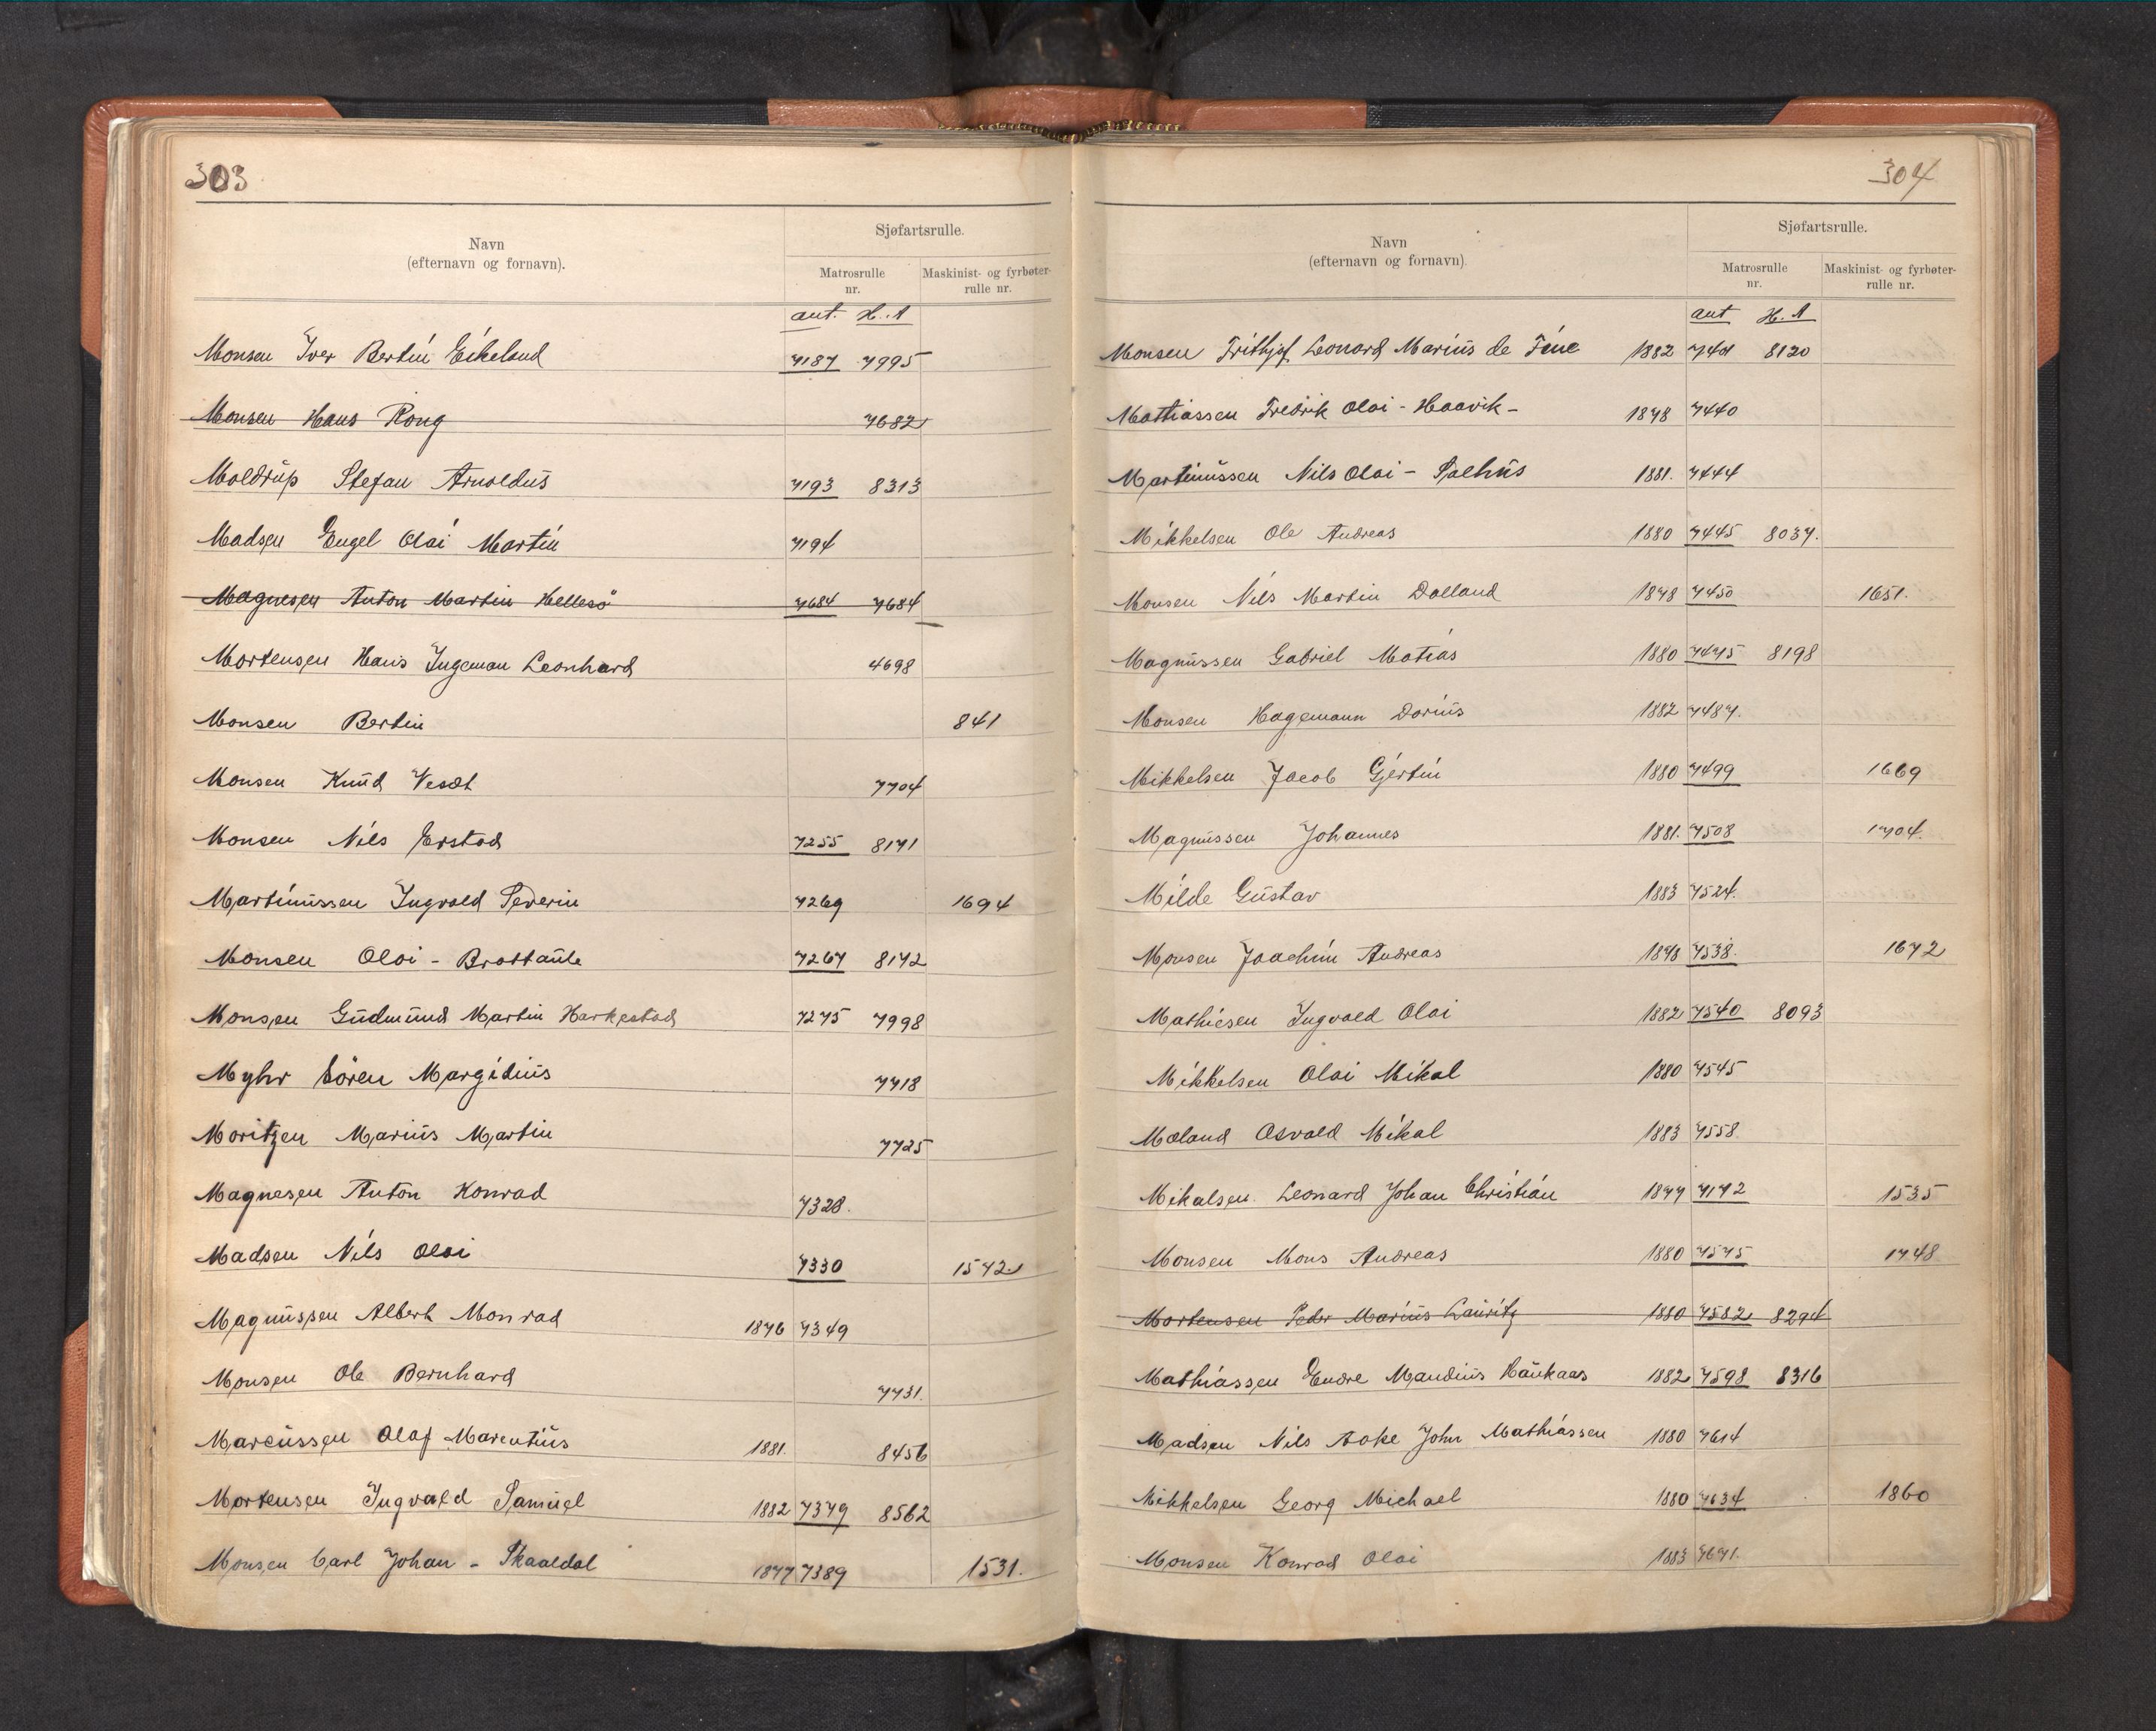 303
Navn
(efternavn og fornavn).
Sjøfartsrulle.
Matrosrulle nr.
Maskinist- og fyrbøter-rulle nr.
ant. H.A
Monsen Iver Bertin Eikeland 7187 7995
Monsen Hans Rong 7682
Moldrup Stefan Arnoldus 7193 8313
Madsen Engel Olai Martin 7194
Magnesen Anton Martin Hellesö 7684 7684
Mortensen Hans Ingeman Leonhard 4698
Monsen Bertin 841
Monsen Knud Vesæt 7704
Monsen Nils Erstad 7255 8171
Martinussen Ingvald Severin 7269 1694
Monsen Olai - Brattaule 7267 8172
Monsen Gudmund Martin Harkestad 7275 7998
Myhr Sören Margidius 7718
Moritzen Marius Martin 7725
Magnesen Anton Konrad 7328.
Madsen Nils Olai 7330 1572
Magnussen Albert Monrad 1876 7349
Monsen Ole Bernhard 7731.
Marcussen Olaf Marentius 1881. 8456
Mortensen Ingvald Samuel 1882 7379 8562
Monsen Carl Johan - Skaaldal 1877 7389 1531.
304
Navn
(efternavn og fornavn)
Sjøfartsrulle.
Matrosrulle nr.
Maskinist- og fyrbøter-rulle nr.
ant H.A
Monsen Frithjof Leonard Marius de Fine 1882 8120
Mathiassen Fredrik Olai - Haavik - 1878 7440
Martinussen Nils Olai - Salhus 1881. 7444
Mikkelsen Ole Andreas 1880 7445 8037.
Monsen Nils Martin Dalland 1878 7450 1651.
Magnussen Gabriel Matias 1880 7475 8198
Monsen Hagemann Dorius 1882 7487.
Mikkelsen Jacob Gjertin 1880 7499 1669
Magnussen Johannes 1881. 7508 1704.
Milde Gustav 1883 7524.
Monsen Joachim Andreas 1878 7538. 1672
Mathiesen Ingvald Olai 1882 7540 8093
Mikkelsen Olai Mikal 1880 7545
Mæland Osvald Mikal 1883 7558.
Mikalsen. Leonard Johan Christian 1877 7172 1535
Monsen Mons Andreas 1880 7575 1748
Mortensen Peder Marius Lauritz 1880 7582 8294
Mathiassen Endre Mandius Haukaas 1882 7598 8316
Madsen Nils Aake John Mathiassen 1880 7614
Mikkelsen Georg Michael 1880 7634 1860
Monsen Konrad Olai 1883 7671.